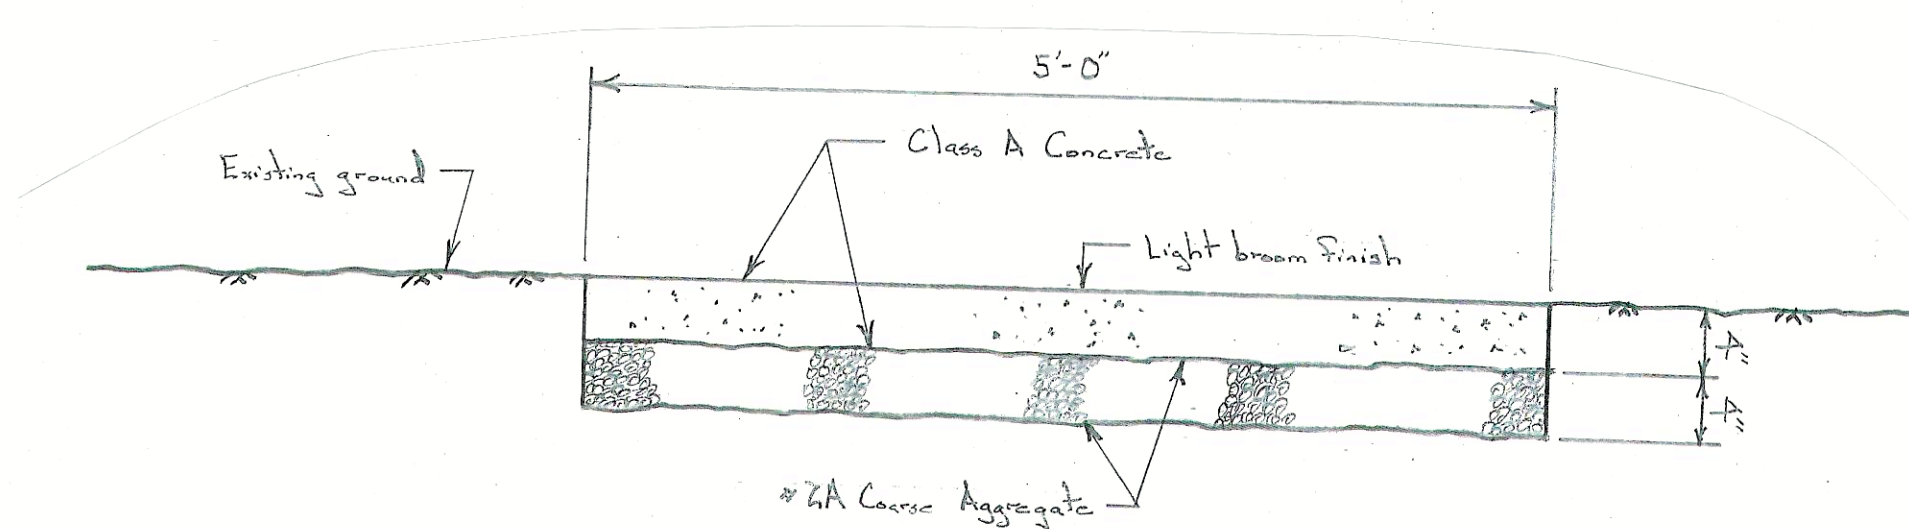 5'-0"
Class A Concrete
Existing ground
Light broom finish
4"
4"
#2A Coarse Aggregate